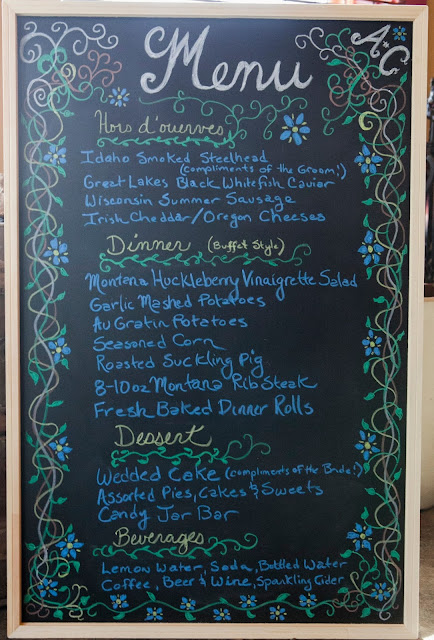 Menu
A & C
Hors d'ouerves
Idaho Smoked Steelhead
(compliments of the Groom!)
Great Lakes Black Whitefish Caviar
Wisconsin Summer Sausage
Irish Cheddar/Oregon Cheeses
Dinner (Buffet Style)
Montana Huckleberry Vinaigrette Salad
Garlic Mashed Potatoes
Au Gratin Potatoes
Seasoned Corn
Roasted Suckling Pig
8-10oz Montana Rib Steak
Fresh Baked Dinner Rolls
Dessert
Wedded Cake (compliments of the Bride!)
Assorted Pies, Cakes & Sweets
Candy Jar Bar
Beverages
Lemon Water, Soda, Bottled Water
Coffee, Beer & Wine, Sparkling Cider